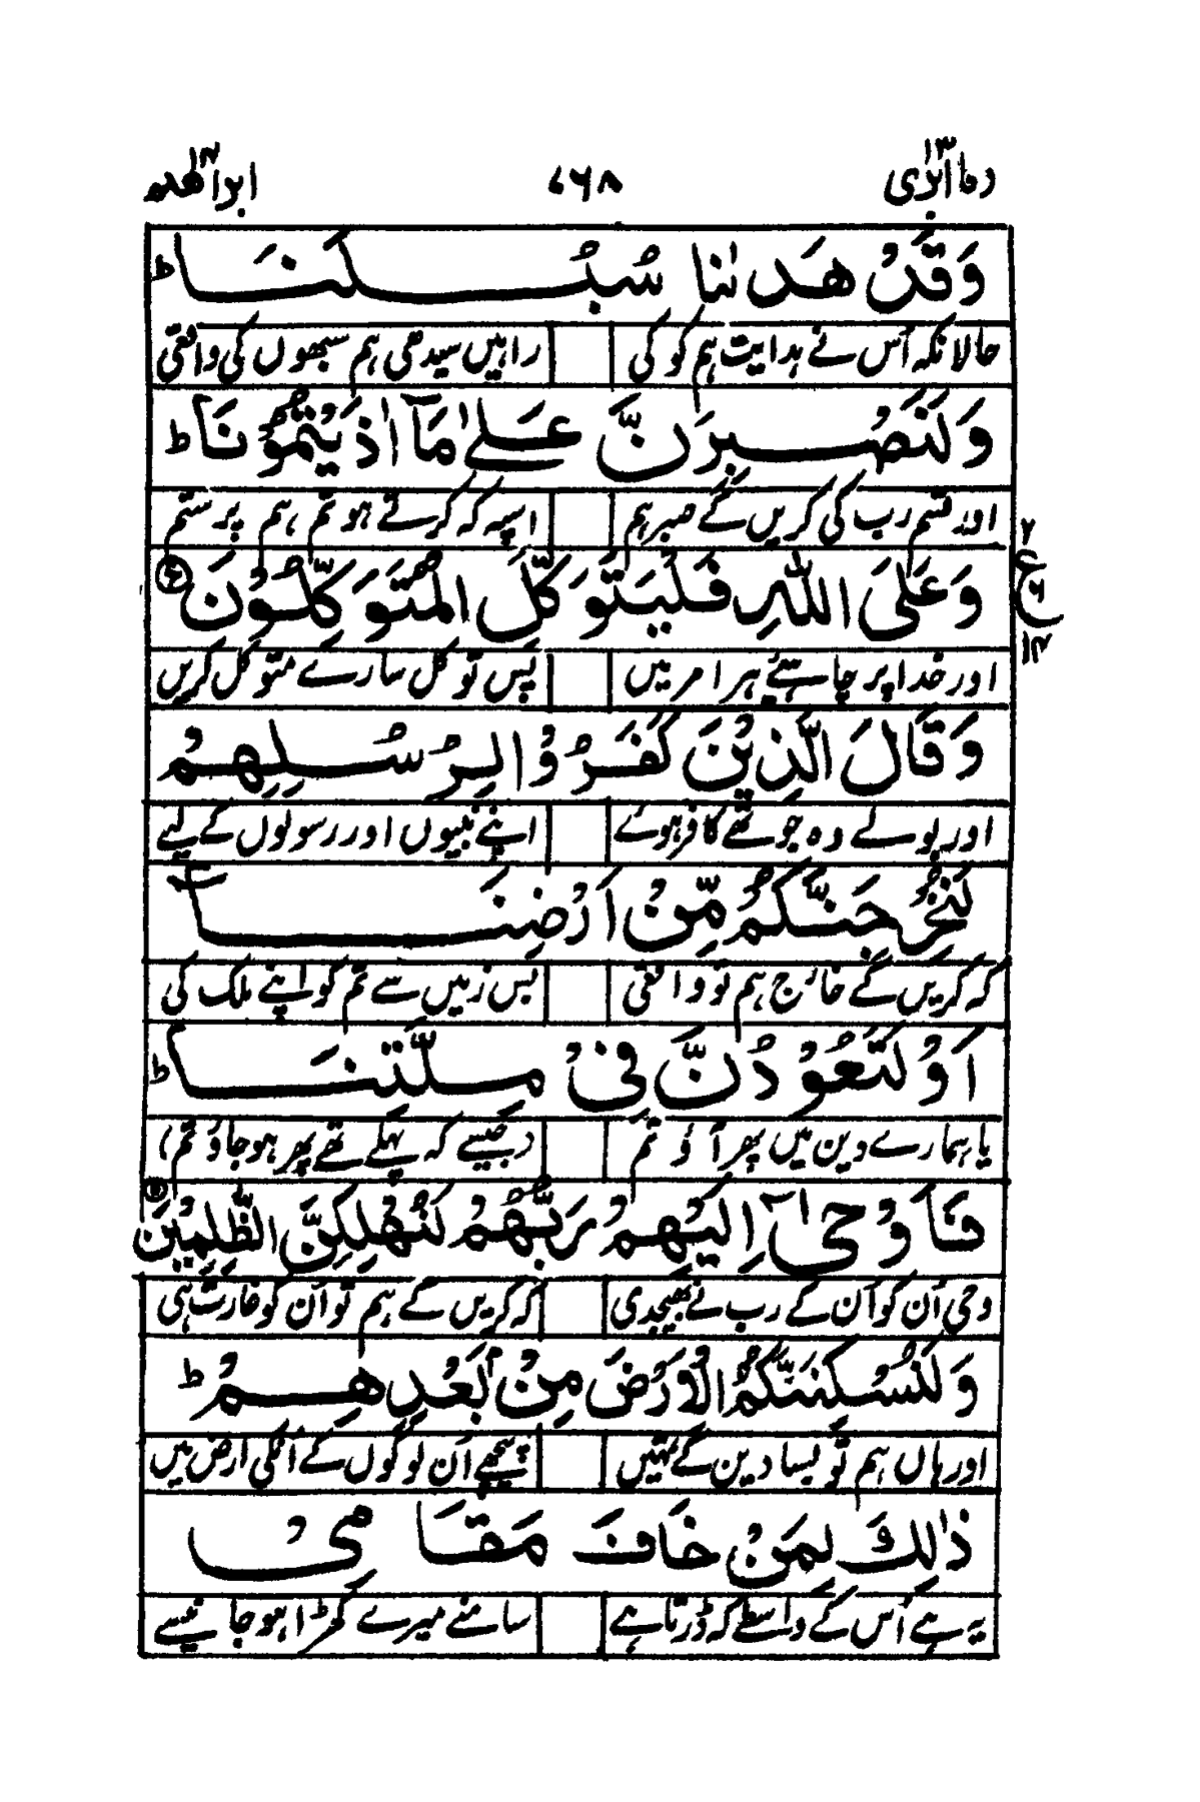 ومآ ابرئ ١٣ ٧٦٨ ابراهيم ١٤
وَقَدْ هَدٰىنَا سُبُلَنَا ؕ
حالانکہ اُس نے ہدایت ہم کو کی راہیں سیدھی ہم سبھوں کی واقعی
وَلَنَصْبِرَنَّ عَلٰى مَآ اٰذَيْتُمُوْنَا ؕ
اور قسم رب کی کریں گے صبر ہم اسپہ کہ کرتے ہو تم ہم پر ستم
وَعَلَى اللّٰهِ فَلْيَتَوَكَّلِ الْمُتَوَكِّلُوْنَ
٢
ع
١٤
اور خدا پر چاہئے ہر امر میں پس توکل سارے متوکل کریں
وَقَالَ الَّذِيْنَ كَفَرُوْا لِرُسُلِهِمْ
اور بولے وہ جو تھے کافر ہوئے اپنے نبیوں اور رسولوں کے لیے
لَنُخْرِجَنَّكُمْ مِّنْ اَرْضِنَآ
کہ کریں گے خارج ہم تو واقعی بس زمیں سے تم کو اپنے ملک کی
اَوْ لَتَعُوْدُنَّ فِيْ مِلَّتِنَا ؕ
یا ہمارے دین میں پھر آؤ تم (جیسے کہ پہلے تھے پھر ہو جاؤ تم)
فَاَوْحٰٓى اِلَيْهِمْ رَبُّهُمْ لَنُهْلِكَنَّ الظّٰلِمِيْنَ
وحی اُن کو اُن کے رب نے بھیجدی کہ کریں گے ہم تو اُن کو غارت ہی
وَلَنُسْكِنَنَّكُمُ الْاَرْضَ مِنْۢ بَعْدِهِمْ ؕ
اور ہاں ہم تو بسا دیں گے تمہیں پیچھے اُن لوگوں کے اُنکی ارض میں
ذٰلِكَ لِمَنْ خَافَ مَقَامِيْ
یہ ہے اُس کے واسطے کہ ڈرتا ہے سامنے میرے کھڑا ہو جانیسے